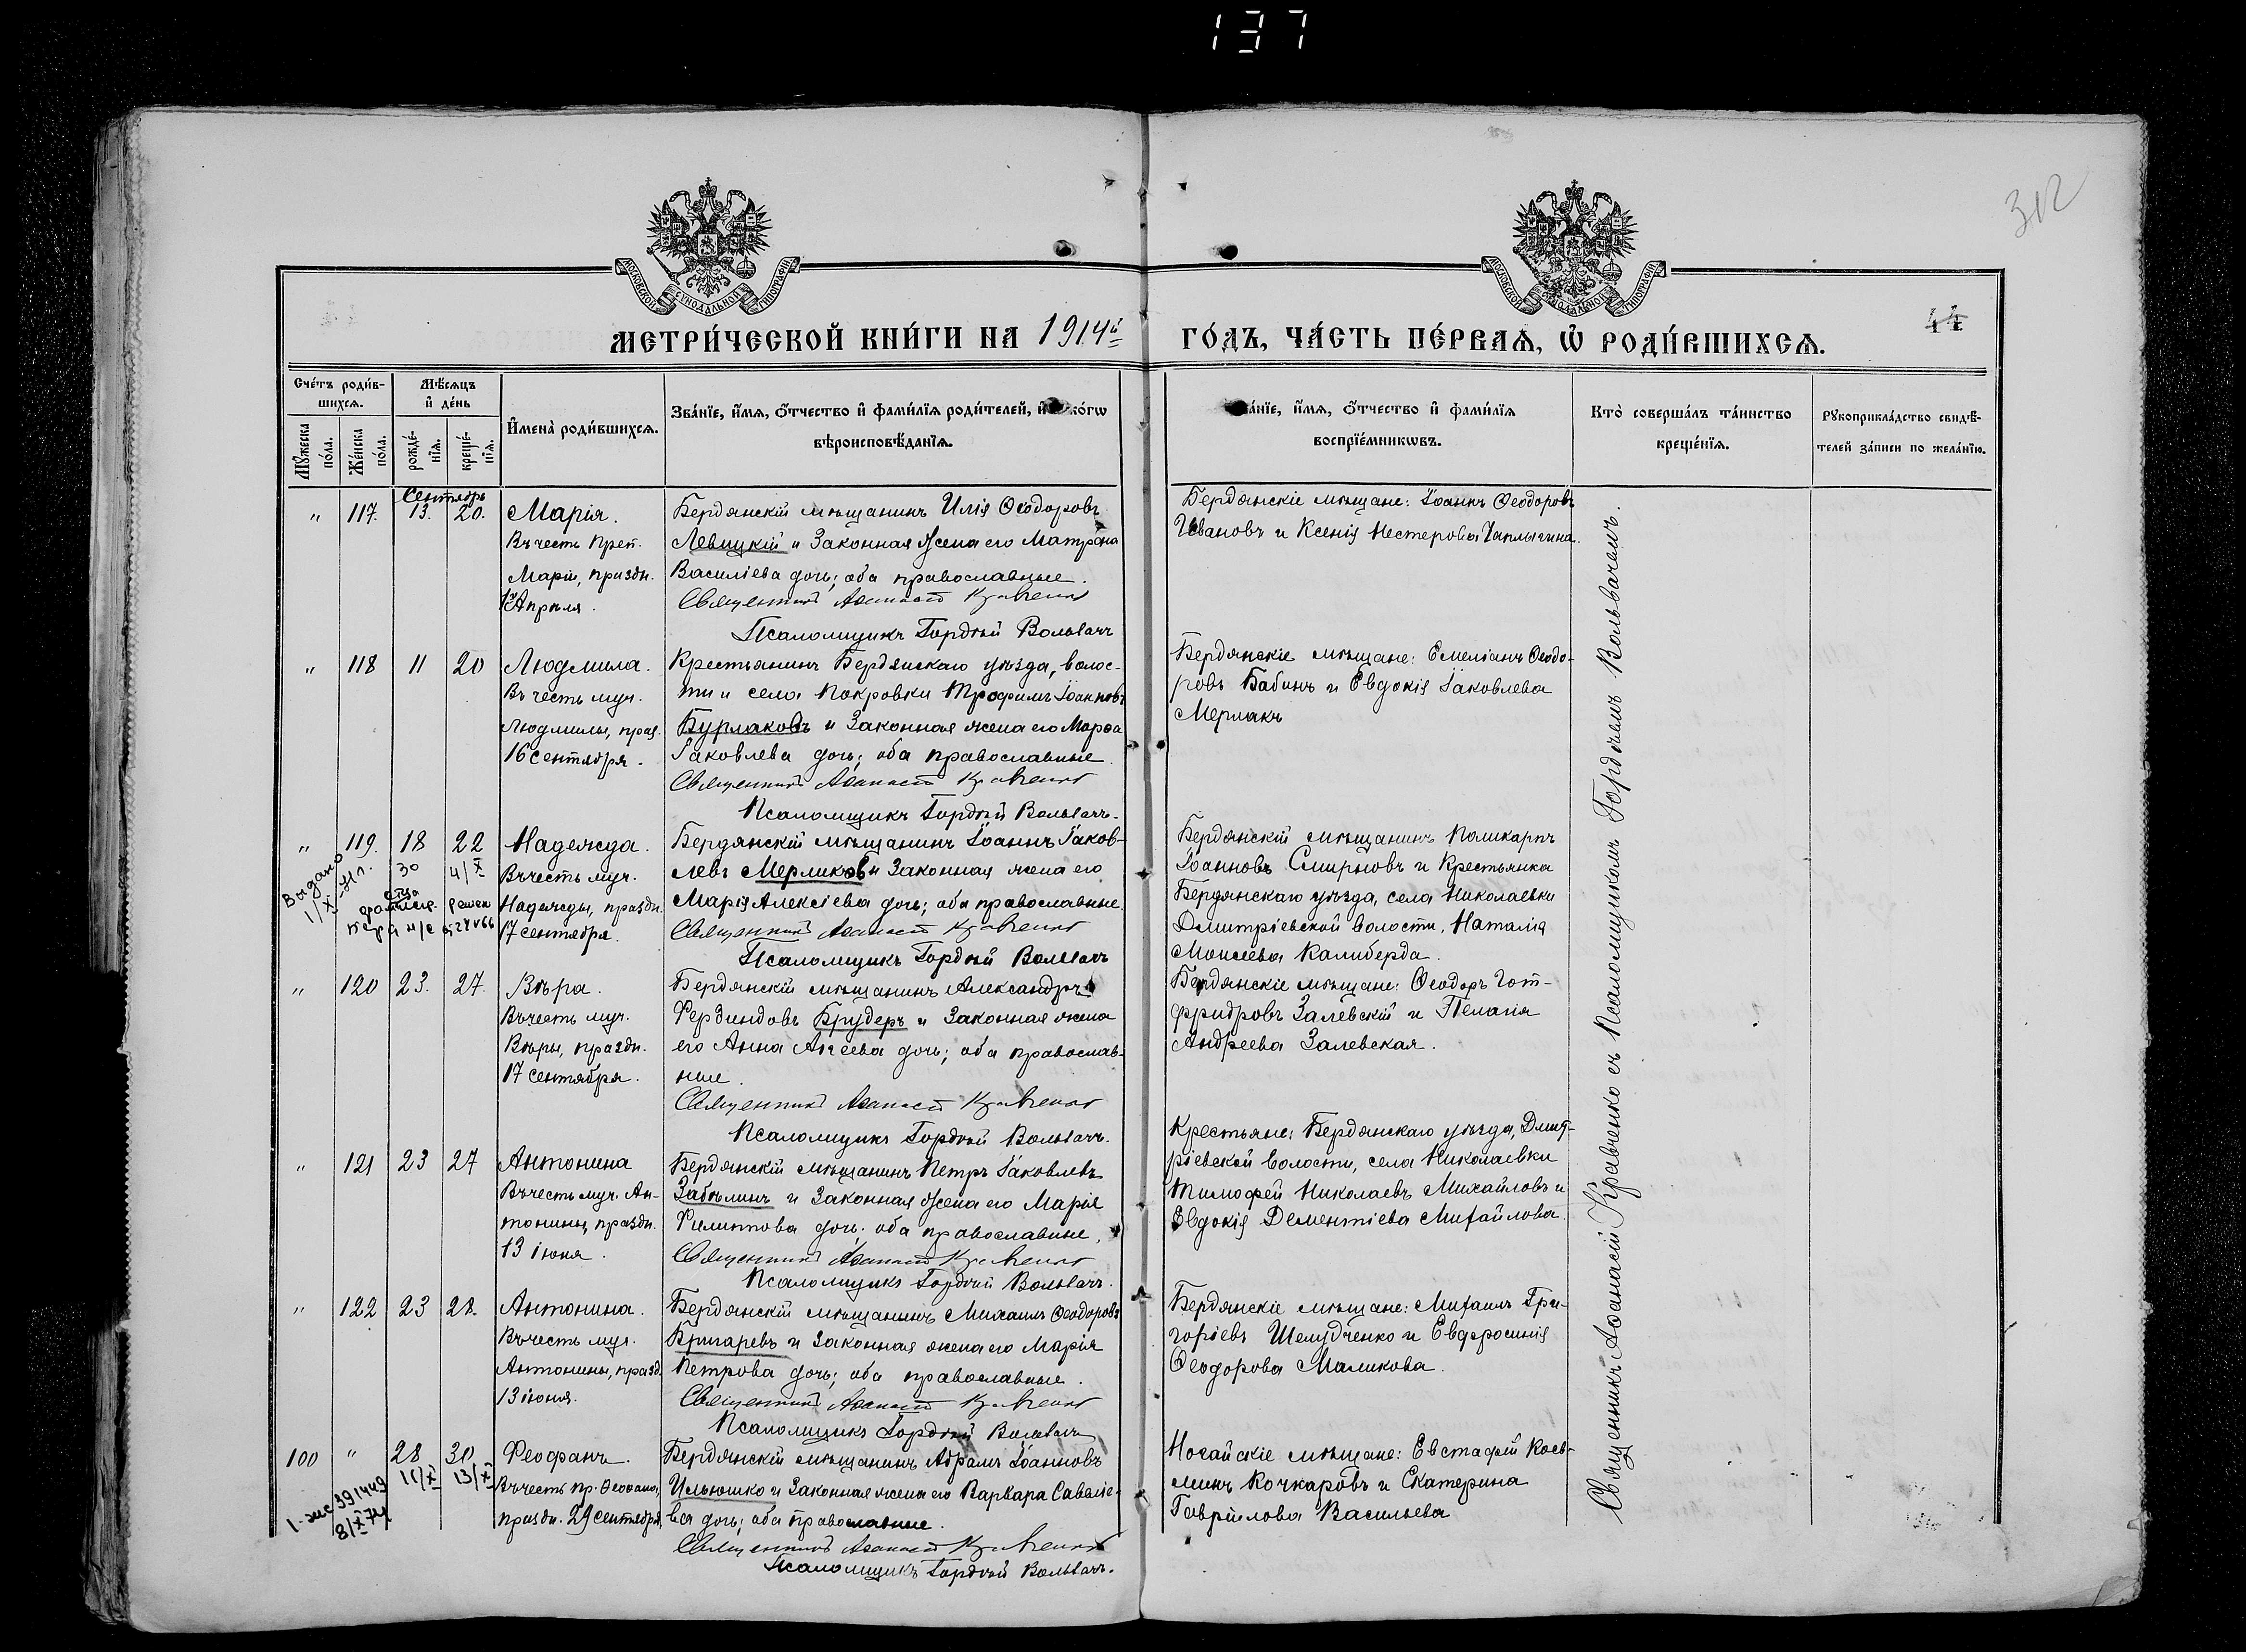 137
312
МОСКОВСКОЙ СѴНОДАЛЬНОЙ ТИПОГРАФІИ
МОСКОВСКОЙ СѴНОДАЛЬНОЙ ТИПОГРАФІИ
44
МЕТРИ́ЧЕСКОЙ КНИ́ГИ НА 1914й ГО́ДЪ, ЧА́СТЬ ПЕ́РВАѦ, Ѡ҆ РОДИ́ВШИХСѦ.
Сче́тъ роди́в-
шихсѧ.
Мꙋ́жеска по́ла.
Же́нска по́ла.
Мѣ́сѧцъ
и҆ де́нь
рожде́-
нїѧ.
креще́-
нїѧ.
И҆мена̀ роди́вшихсѧ.
Зва́нїе, и҆́мѧ, ѻ҆́тчество и҆ фами́лїѧ роди́телей, и҆ ко́гѡ
вѣроисповѣ́данїѧ.
зва́нїе, и҆́мѧ, ѻ҆́тчество и҆ фами́лїѧ
воспрїе́мникѡвъ.
Кто̀ соверша́лъ та́инство
креще́нїѧ.
Рꙋкоприкла́дство свидѣ́-
телей за́писи по жела́нїю.
Сентябрь
" 117. 13. 20. Марія.
Въ честь Преп.
Маріи, праздн.
1го Апрѣля.
Бердянскій мѣщанинъ Илія Ѳеодоровъ
Левицкій и законная жена его Матрона
Василіева дочь; оба православные.
Священникъ Аѳанасій Кравченко
Псаломщикъ Гордѣй Вольвачъ
Бердянскіе мѣщане: Іоаннъ Ѳеодоровъ
Ивановъ и Ксенія Нестерова Чаплыгина.
" 118 11 20 Людмила.
Въ честь муч.
Людмилы, праз.
16 сентября.
Крестьянинъ Бердянскаго уѣзда, волос-
ти и села Покровки Трофимъ Іоанновъ
Бурлаковъ и законная жена его Марѳа
Іаковлева дочь; оба православные.
Священникъ Аѳанасій Кравченко
Псаломщикъ Гордѣй Вольвачъ.
Бердянскіе мѣщане: Емеліанъ Ѳеодо-
ровъ Бабинъ и Евдокія Іаковлева
Мерлакъ
" 119. 18 22 Надежда.
30 4/X
Выдано
1/X-31 г.
отца
Въ честь муч.
Надежды, праздн.
17 сентября.
Бердянскій мѣщанинъ Іоаннъ Іаков-
левъ Мерликов и законная жена его
Марія Алексіева дочь; оба православные.
Священникъ Аѳанасій Кравченко
Псаломщикъ Гордѣй Вольвачъ
Бердянскій мѣщанинъ Поликарпъ
Іоанновъ Смирновъ и крестьянка
Бердянскаго уѣзда, села Николаевки
Димитріевской волости, Наталія
Моисеева Калиберда.
" 120 23. 27. Вѣра.
Въ честь муч.
Вѣры, праздн.
17 сентября.
Бердянскій мѣщанинъ Александръ
Фердиндовъ Брудеръ и законная жена
его Анна Аггеева дочь; оба православ-
ные.
Священникъ Аѳанасій Кравченко
Псаломщикъ Гордѣй Вольвачъ.
Бердянскіе мѣщане: Ѳеодоръ Гот-
фридровъ Залевскій и Пелагія
Андреева Залевская.
" 121 23 27 Антонина
Въ честь муч. Ан-
тонины, праздн.
13 іюня.
Бердянскій мѣщанинъ Петръ Іаковлевъ
Забѣлинъ и законная жена его Марія
Филиппова дочь; оба православные.
Священникъ Аѳанасій Кравченко
Псаломщикъ Гордѣй Вольвачъ.
Крестьяне: Бердянскаго уѣзда, Димит-
ріевской волости, села Николаевки
Тимофей Николаевъ Михайловъ и
Евдокія Дементіева Михайлова.
" 122 23 28. Антонина.
Въ честь муч.
Антонины, празд.
13 іюня.
Бердянскій мѣщанинъ Михаилъ Ѳеодоровъ
Бригаревъ и законная жена его Марія
Петрова дочь; оба православные.
Священникъ Аѳанасій Кравченко
Псаломщикъ Гордѣй Вольвачъ
Бердянскіе мѣщане: Михаилъ Гри-
горіевъ Шелудченко и Евфросинія
Ѳеодорова Маликова.
100 " 28 30 Феофанъ.
11/X 13/X
391449
8/X 74
Въ честь пр. Ѳеофана,
праздн. 29 сентября.
Бердянскій мѣщанинъ Абрамъ Іоанновъ
Ильюшко и законная жена его Варвара Савеліе-
ва дочь; оба православные.
Священникъ Аѳанасій Кравченко
Псаломщикъ Гордѣй Вольвачъ.
Ногайскіе мѣщане: Евстафій Косъ-
минъ Кочкаровъ и Екатерина
Гавріилова Васильева
Священникъ Аѳанасій Кравченко съ Псаломщикомъ Гордѣемъ Вольвачемъ.